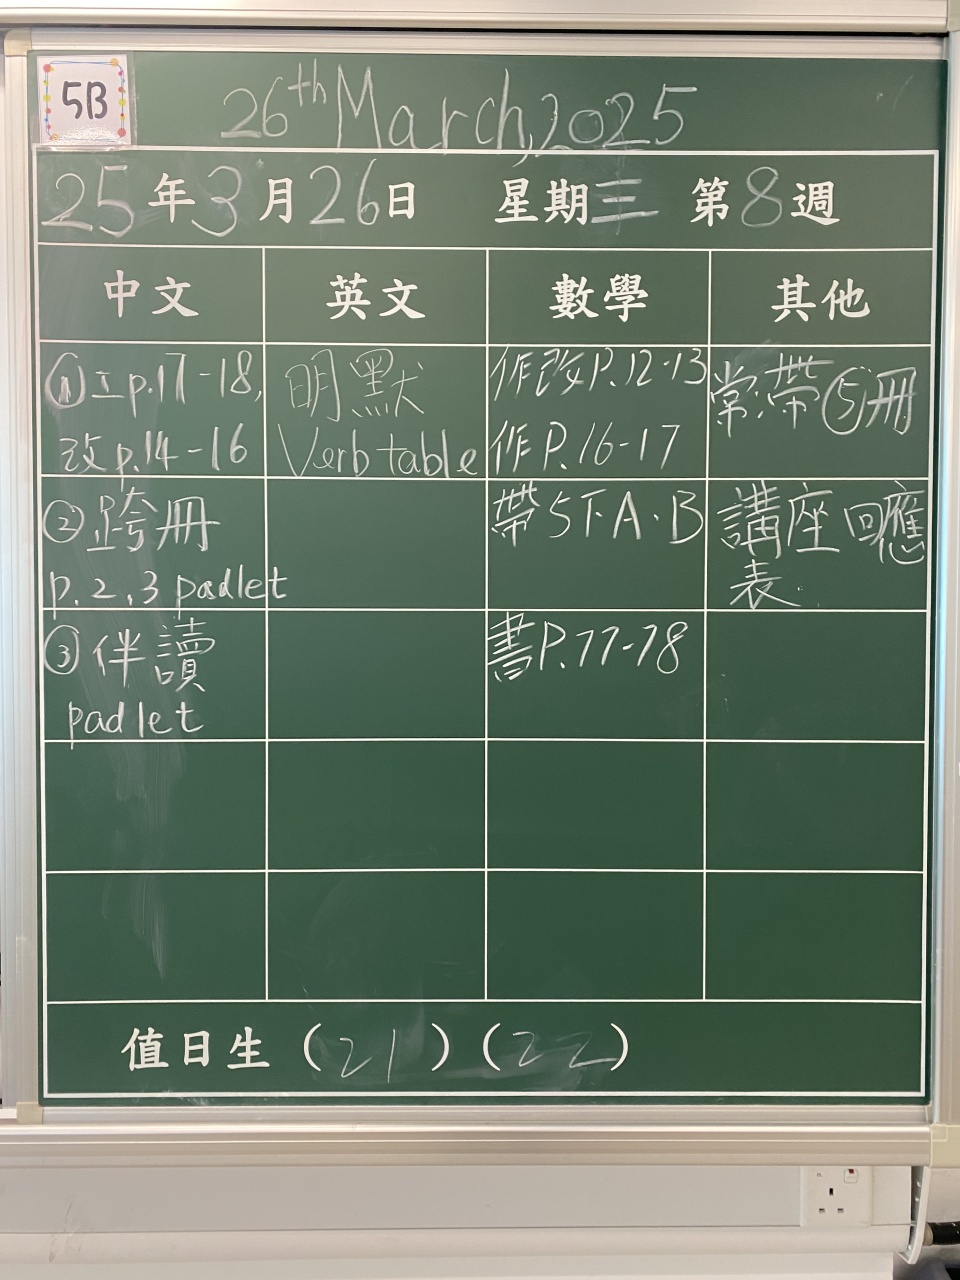 5B
26th March, 2025
25年3月26日 星期三 第8週
中文 英文 數學 其他
①工p.17-18,
改p.14-16
明默
Verb table
作改P.12-13
作P.16-17
常帶⑤冊
②跨冊
p.2,3 padlet
帶5下A、B
講座回應
表
③伴讀
padlet
書P.77-78
值日生(21)(22)